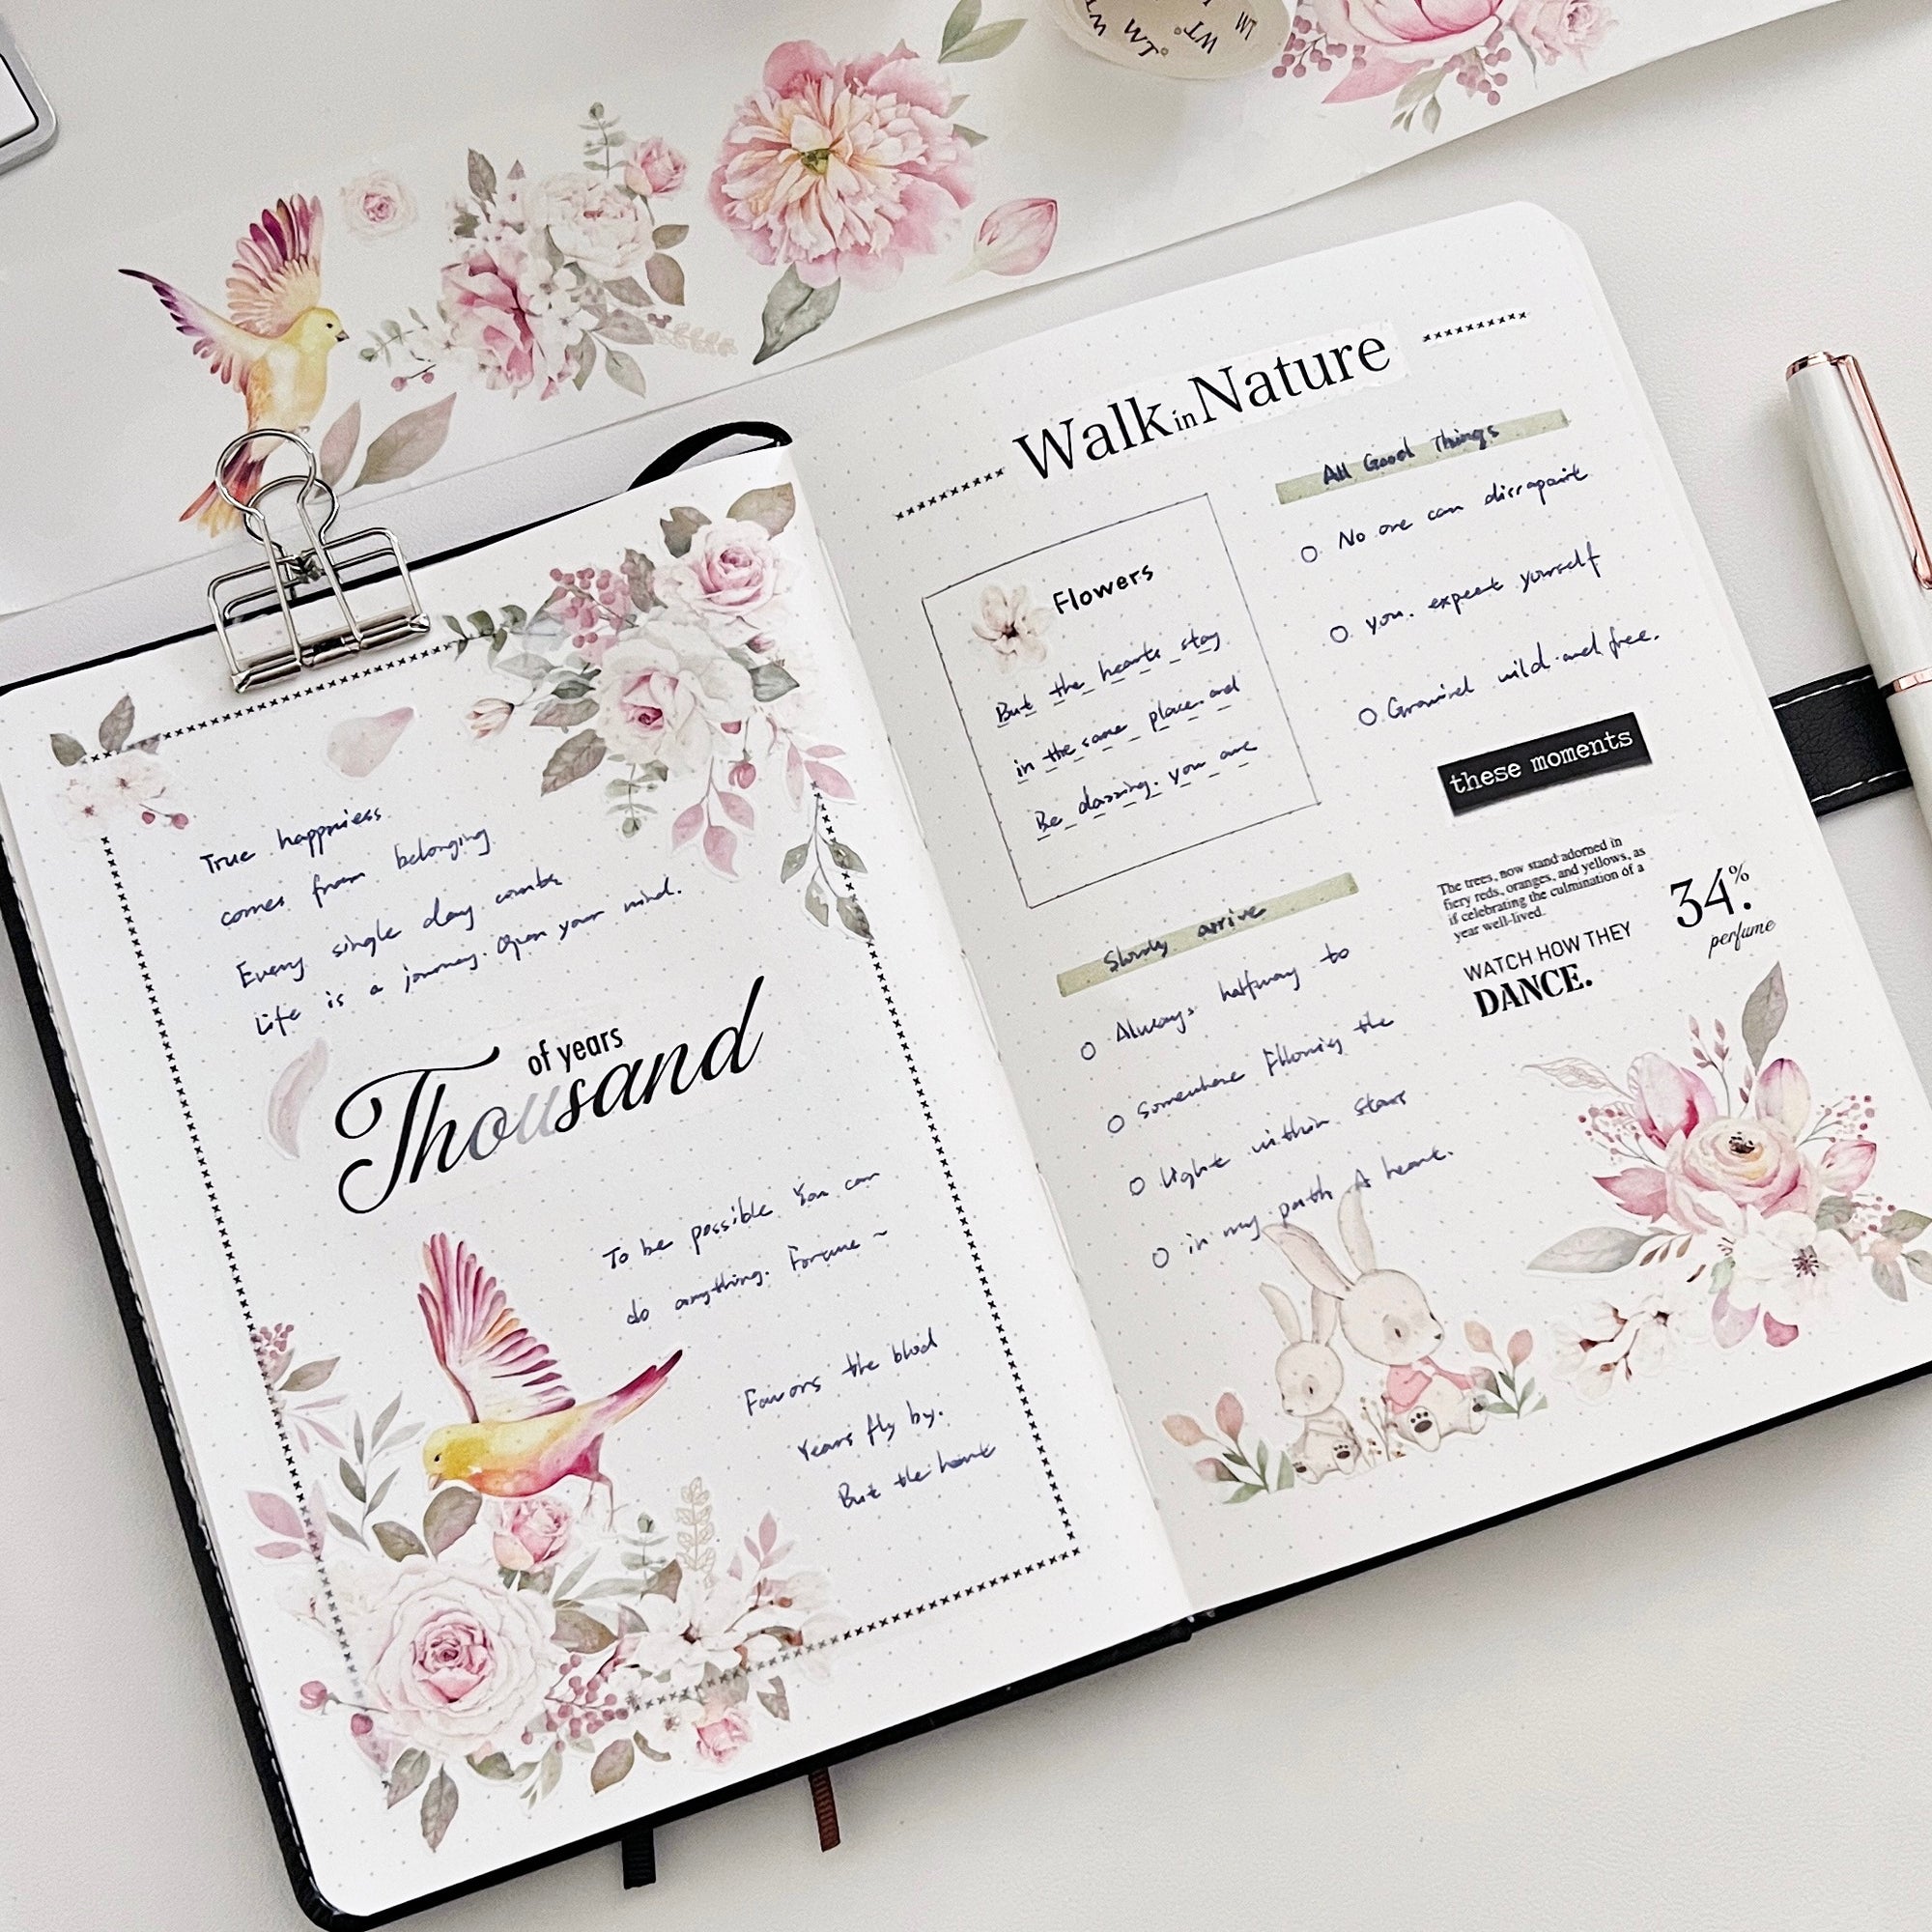 True happniess
comes from belonging
Every single day combs
Life is a journey. Open your mind.
of years
Thousand
To be possible You can
do anything. Forune ~
Favors the blod
Years fly by.
But the heart
Walk in Nature
Flowers
But the hearts stay
in the same place.and
Be dazzing. you are
All Good Things
No one can dissapoint
you. expect yourself
wild and free.
these moments
Slowly arrive
Always halfway to
Somewhere the
light within stars
in my path A heart.
The trees, now stand adorned in
fiery reds, oranges, and yellows, as
if celebrating the culmination of a
year well-lived.
34.%
perfume
WATCH HOW THEY
DANCE.